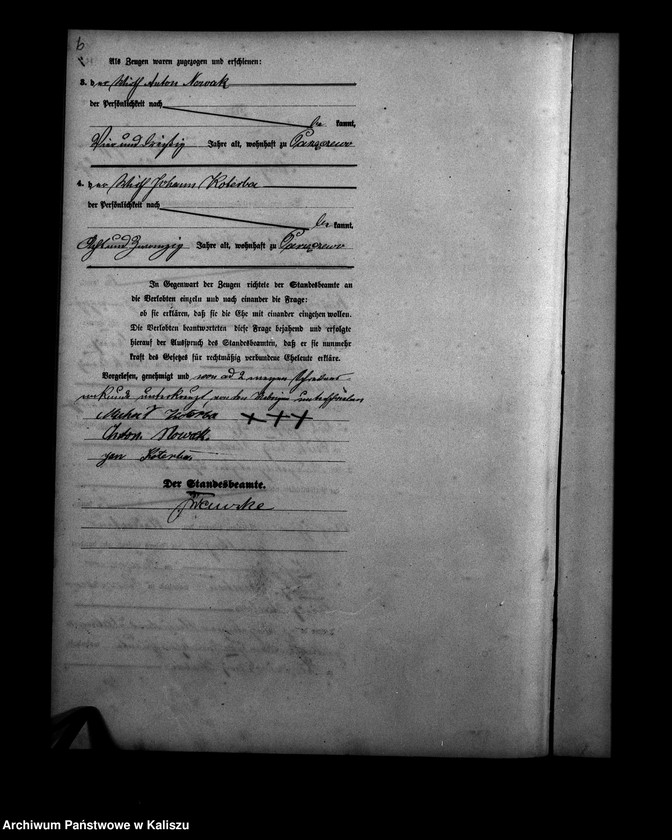 6
Als Zeugen waren zugezogen und erschienen:
3. der Wirth Anton Nowak
der Persönlichkeit nach
be kannt,
Vier und dreißig Jahre alt, wohnhaft zu
4. der Wirth Johann Koterba
der Persönlichkeit nach
be kannt,
Acht und zwanzig Jahre alt, wohnhaft zu
In Gegenwart der Zeugen richtete der Standesbeamte an
die Verlobten einzeln und nach einander die Frage:
ob sie erklären, daß sie die Ehe mit einander eingehen wollen.
Die Verlobten beantworteten diese Frage bejahend und erfolgte
hierauf der Ausspruch des Standesbeamten, daß er sie nunmehr
kraft des Gesetzes für rechtmäßig verbundene Eheleute erkläre.
Vorgelesen, genehmigt und von ad 2 wegen Schreibens
unkunde unterkreuzt, von den Uebrigen unterschrieben
+++
Anton Nowak
Jan Koterba
Der Standesbeamte.
Archiwum Państwowe w Kaliszu